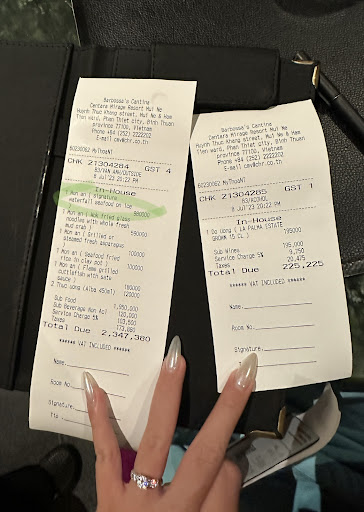 Barbossa's Cantina
Centara Mirage Resort Mui Ne
Huynh Thuc Khang street, Mui Ne & Ham
Tien ward, Phan Thiet city, Binh Thuan
province 77100, Vietnam
Phone +84 (252) 2222202
Email cmv@chr.co.th
60230062 MyThoaNT
CHK 21304284 GST 4
B3/VAN ANH/OUTSIDE
8 Jul'23 20:12 PM
In-House
1 Mon an ( signature
waterfall seafood on ice 990000
1 Mon an ( Wok fried glass
noodles with whole fresh
mud crab ) 590000
1 Mon an ( Grilled or
steamed fresh asparagus
100000
1 Mon an ( Seafood fried
rice in clay pot ) 180000
1 Mon an ( Flame grilled
cuttlefish with sate
sauce )
2 Thuc uong (Alba 450ml) 120000
Sub Food
Sub Beverage Non Alc 120,000
Service Charge 5% 103,500
Taxes
Total Due 2,347,380
****** VAT INCLUDED ******
Name:
Room No:
Signature:
Tip :
Barbossa's Cantina
Centara Mirage Resort Mui Ne
Huynh Thuc Khang street, Mui Ne & Ham
Tien ward, Phan Thiet city, Binh Thuan
province 77100, Vietnam
Phone +84 (252) 2222202
Email cmv@chr.co.th
60230062 MyThoaNT
CHK 21304285 GST 1
B3/ALCOHOL
8 Jul'23 20:12 PM
In-House
1 Do uong ( LA PALMA ESTATE
195,000
Sub Wines 195,000
Service Charge 5% 9,750
Taxes 20,475
Total Due 225,225
****** VAT INCLUDED ******
Name:
Room No:
Signature: